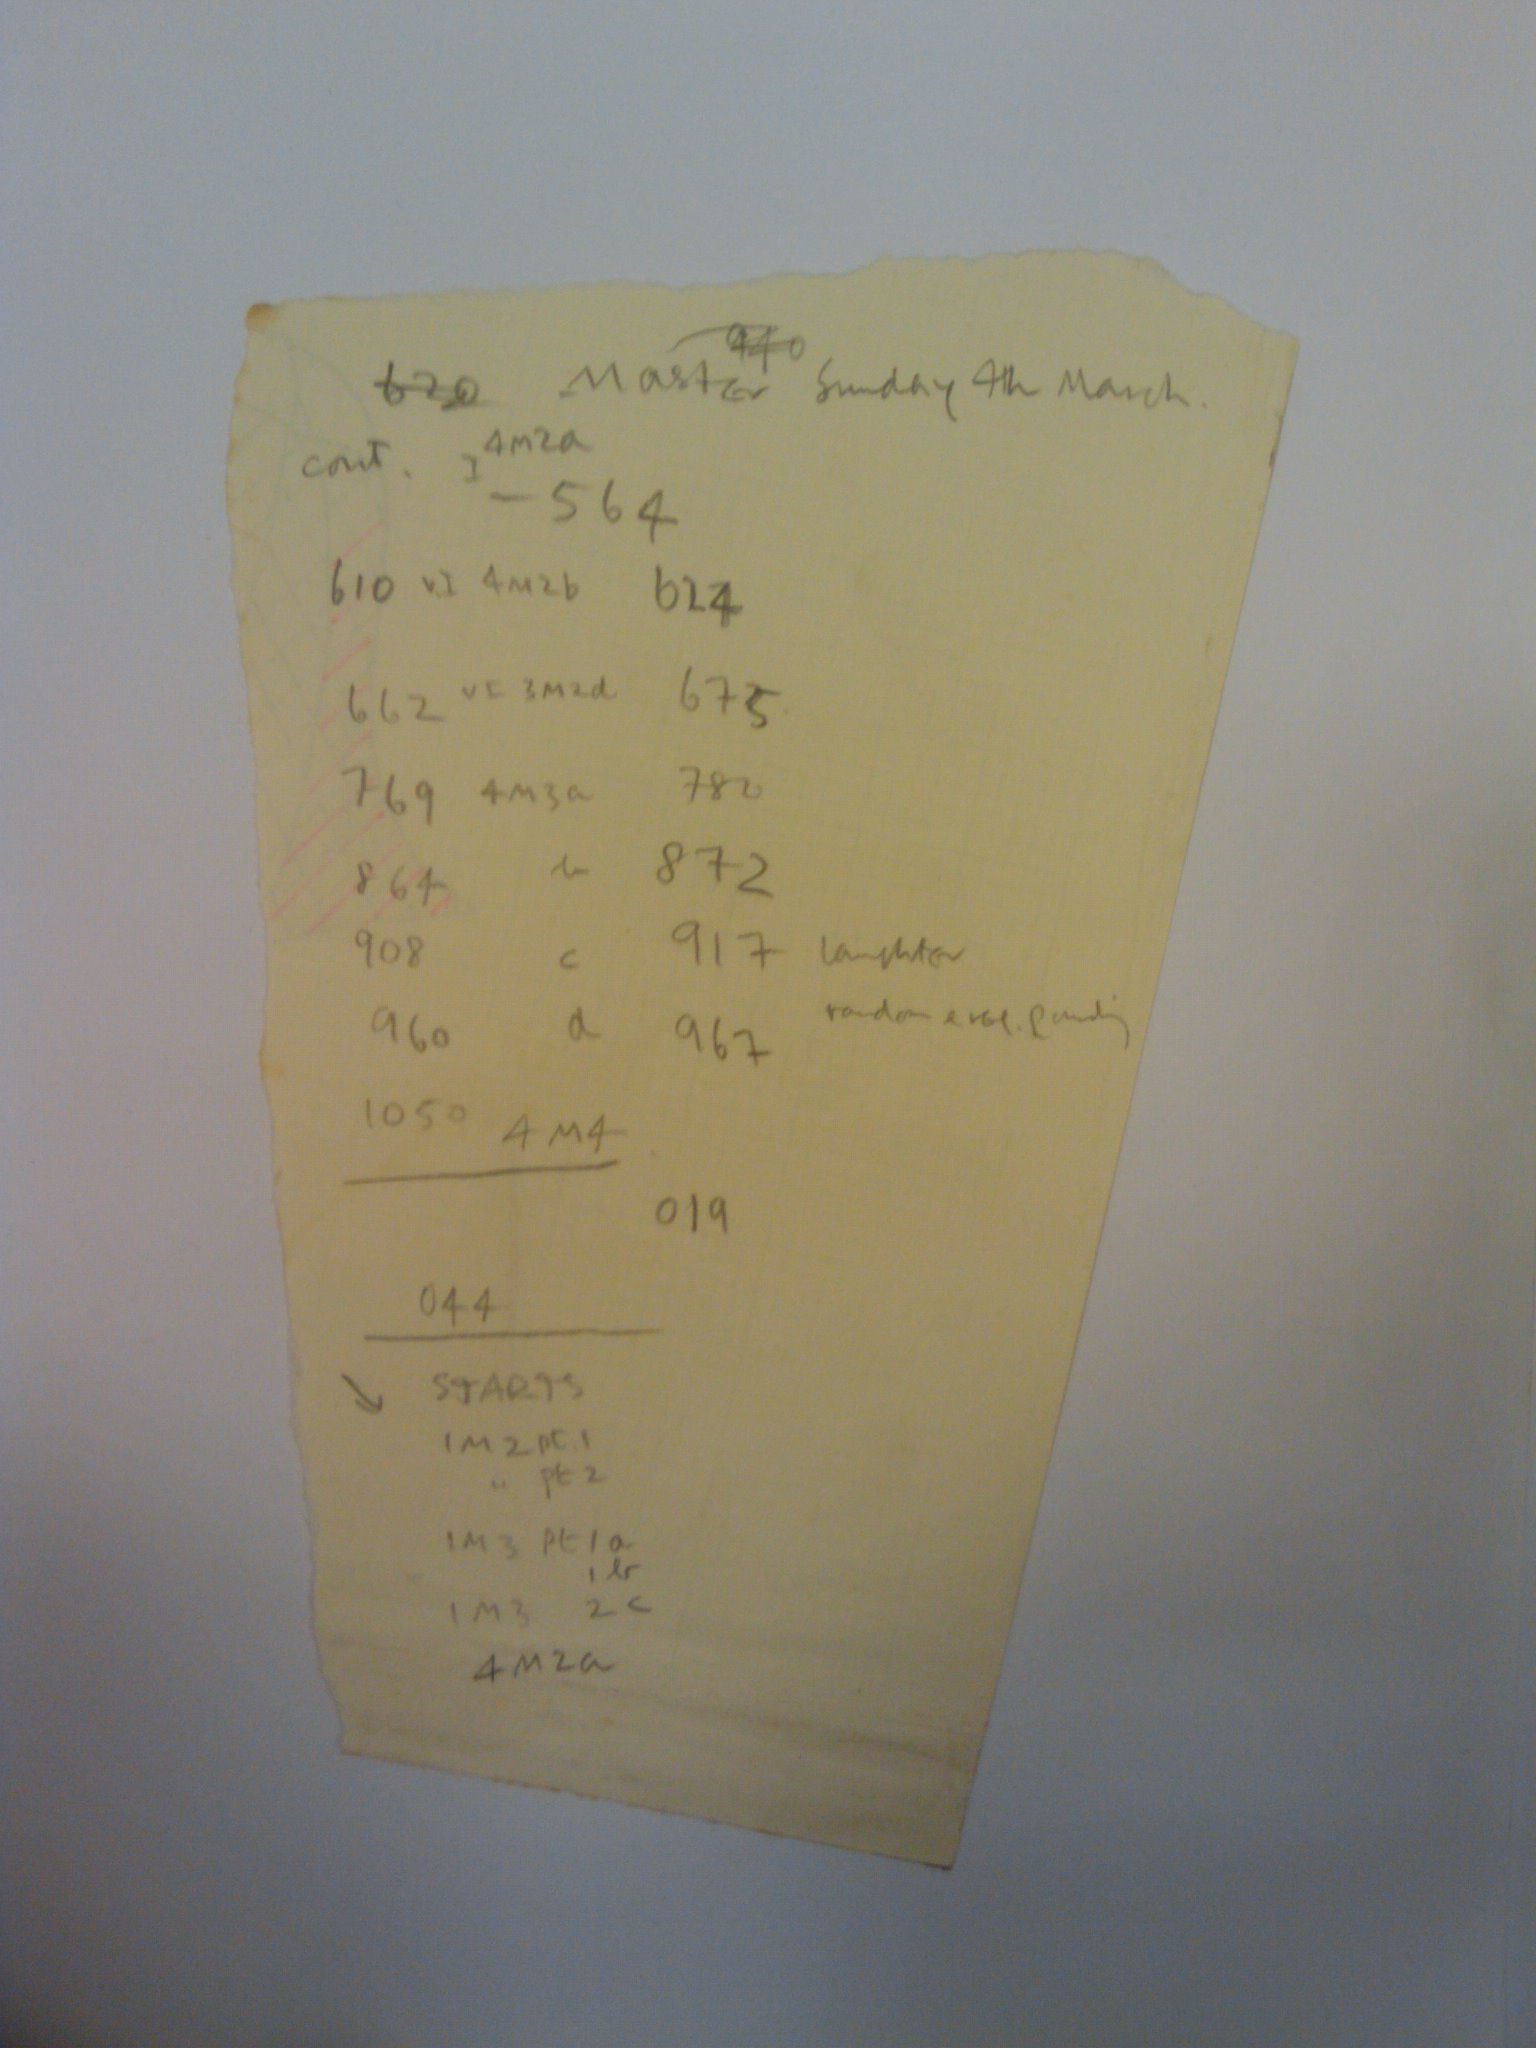 940
620 Master Sunday 4th March.
cont. I 4M2a
- 564
610 VI 4M2b 624
662 VI 3M2d 675
769 4M3a 780
864 b 872
908 c 917 laughter
960 d 967 random
1050 4M4
019
044
↘ STARTS
1M2 pt.1
" pt2
1M3 pt 1a
1b
1M3 2c
4M2a